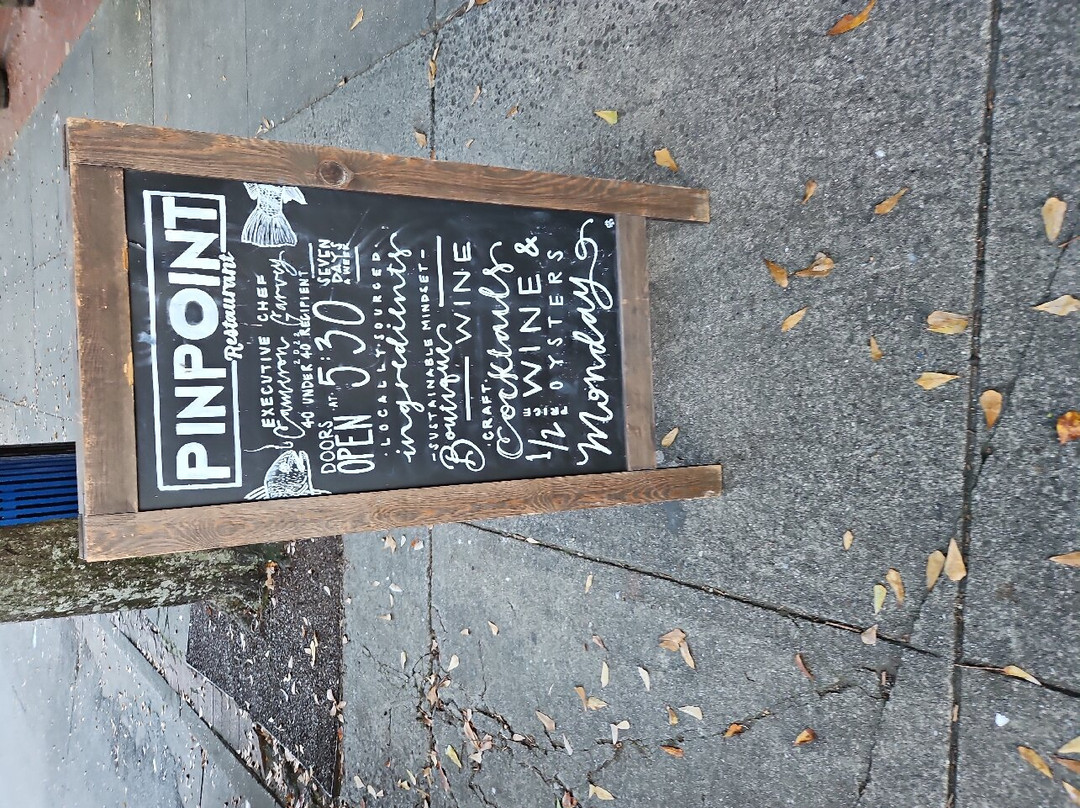 PINPOINT
Restaurant
EXECUTIVE CHEF
Cameron Garvey
2022
40 UNDER 40 RECIPIENT
DOORS AT 5:30 SEVEN
OPEN DAYS
A WEEK
·LOCALLY·SOURCED·
ingredients
-SUSTAINABLE MINDSET-
Boutique WINE
·CRAFT·
Cocktails
1/2 PRICE WINE &
1/2 PRICE OYSTERS
Monday